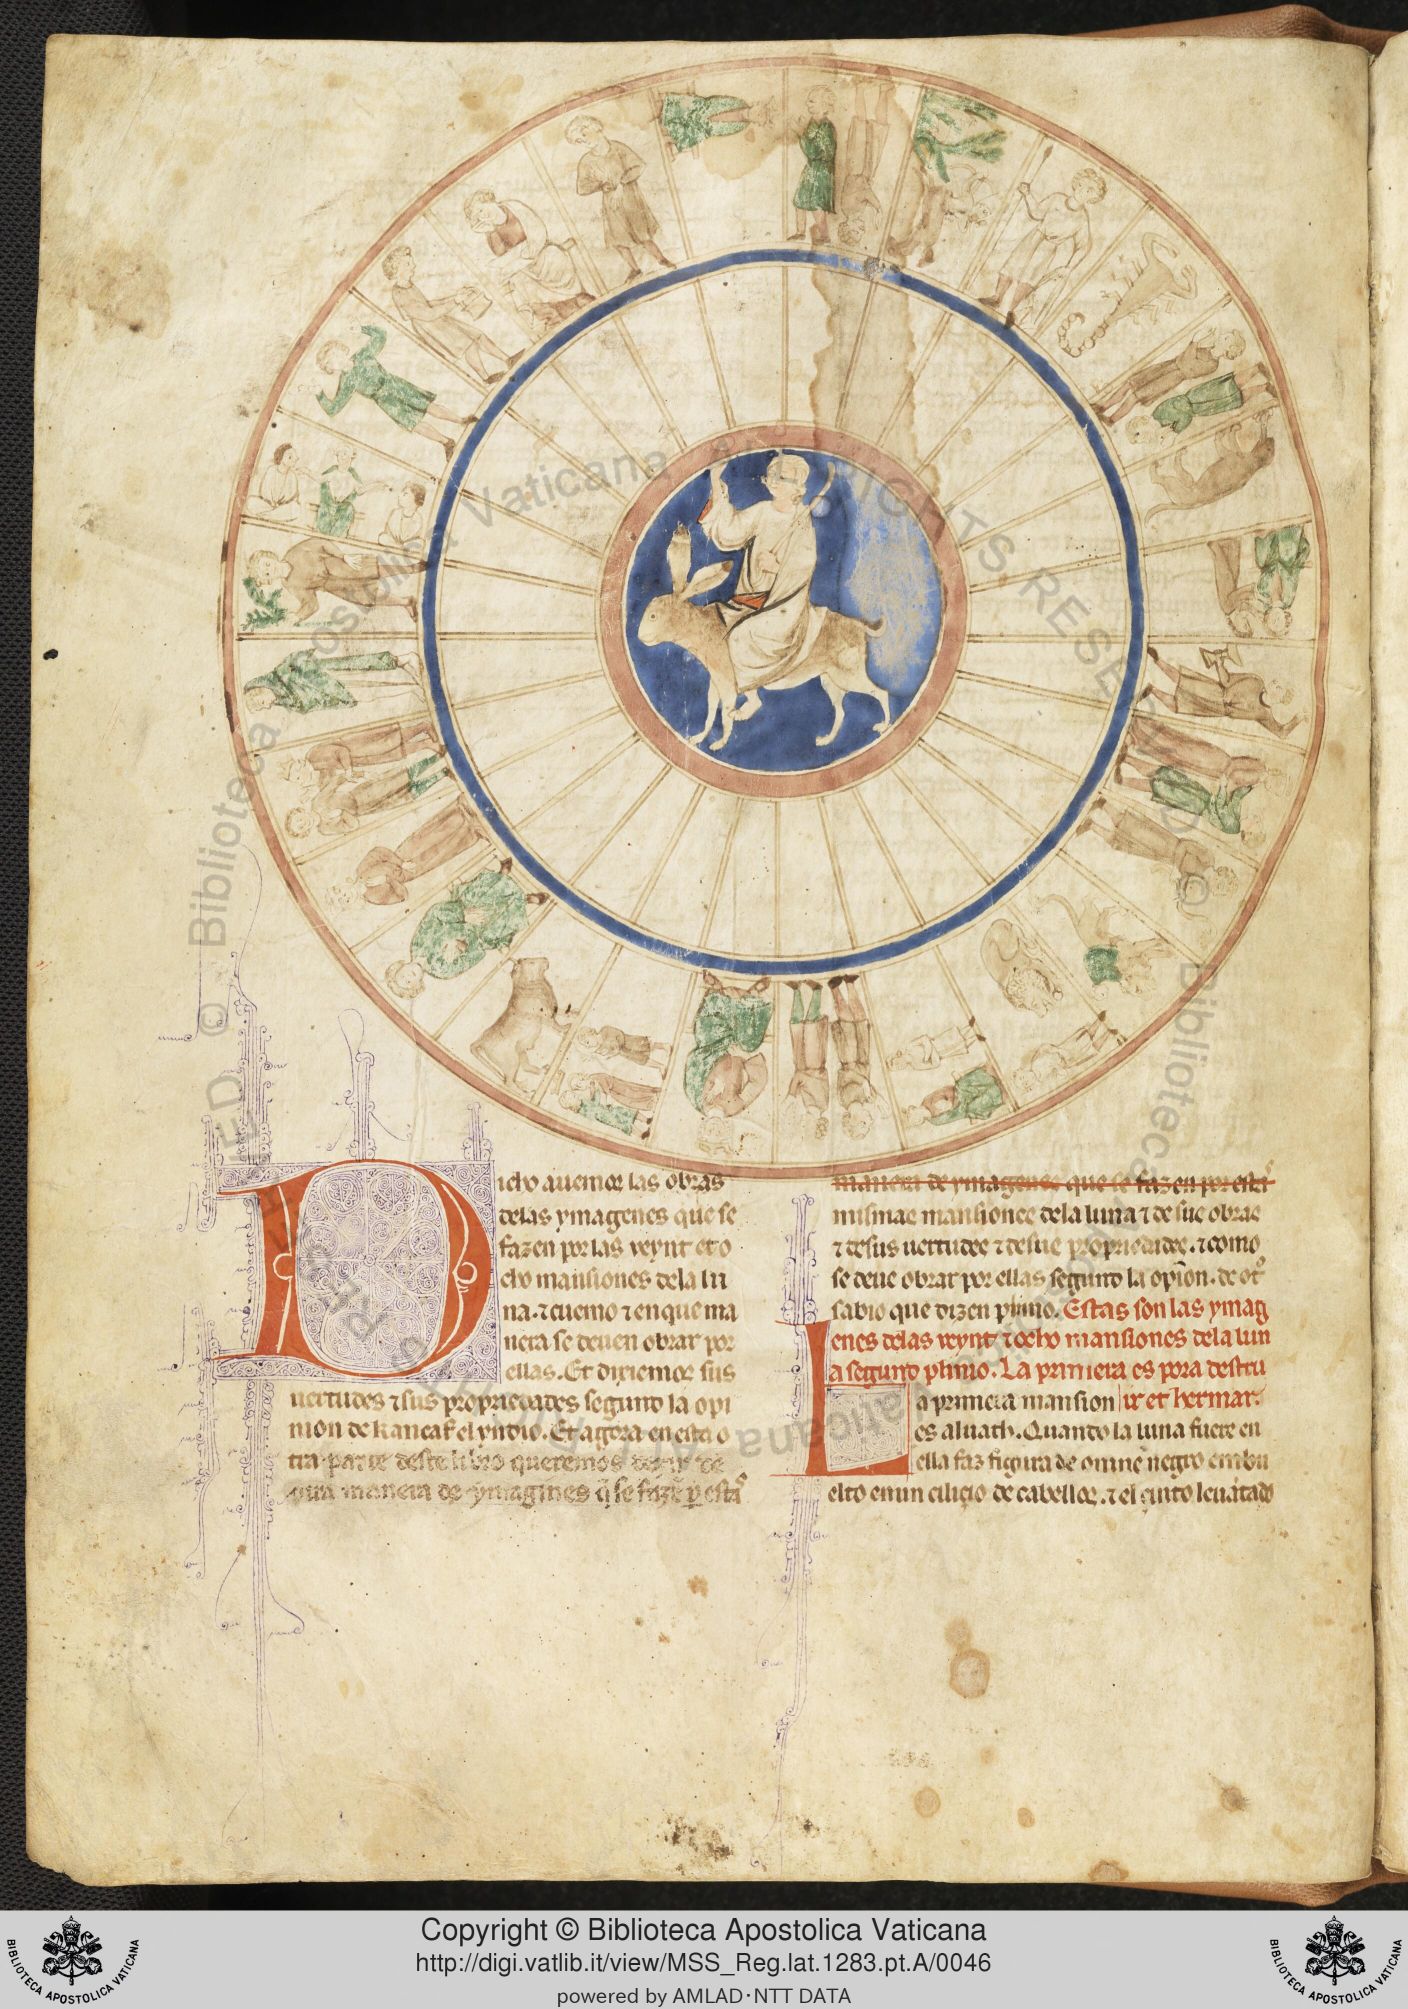 Dicho auemos las obras
delas ymagenes que se
fazen por las veynt et o
cho mansiones dela lu
na. ⁊ cuemo ⁊ en que ma
nera se deuen obrar por
ellas. Et dixiemos sus
uertudes ⁊ sus propriedades segunt la opi
nion de Kancaf el yndio. Et agora en esta o
tra parte deste libro queremos dezir de
otra manera de ymagines q̃ se fazẽ ꝑ estas
manera de ymagenes que se fazen por estas
mismas mansiones dela luna ⁊ de sus obras
⁊ de sus uertudes ⁊ de sus propriedades. ⁊ como
se deue obrar por ellas segunt la opĩon. de otro
sabio que dizen plinio. Estas son las ymag
enes delas veynt ⁊ ocho mansiones dela lun
a segunt plinio. La primera es pora destru
La primera mansion ir et hermar.
es alnath. Quando la luna fuere en
ella faz figura de omne negro embu
elto en un cilicio de cabellos. ⁊ el cinto leuãtado
© Biblioteca Apostolica Vaticana ALL RIGHTS RESERVED
Copyright © Biblioteca Apostolica Vaticana
http://digi.vatlib.it/view/MSS_Reg.lat.1283.pt.A/0046
powered by AMLAD·NTT DATA
BIBLIOTECA APOSTOLICA VATICANA
BIBLIOTECA APOSTOLICA VATICANA